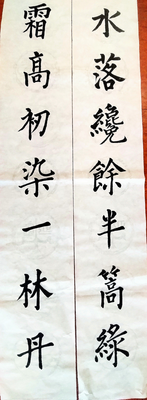 水落纔餘半篙綠
霜高初染一林丹